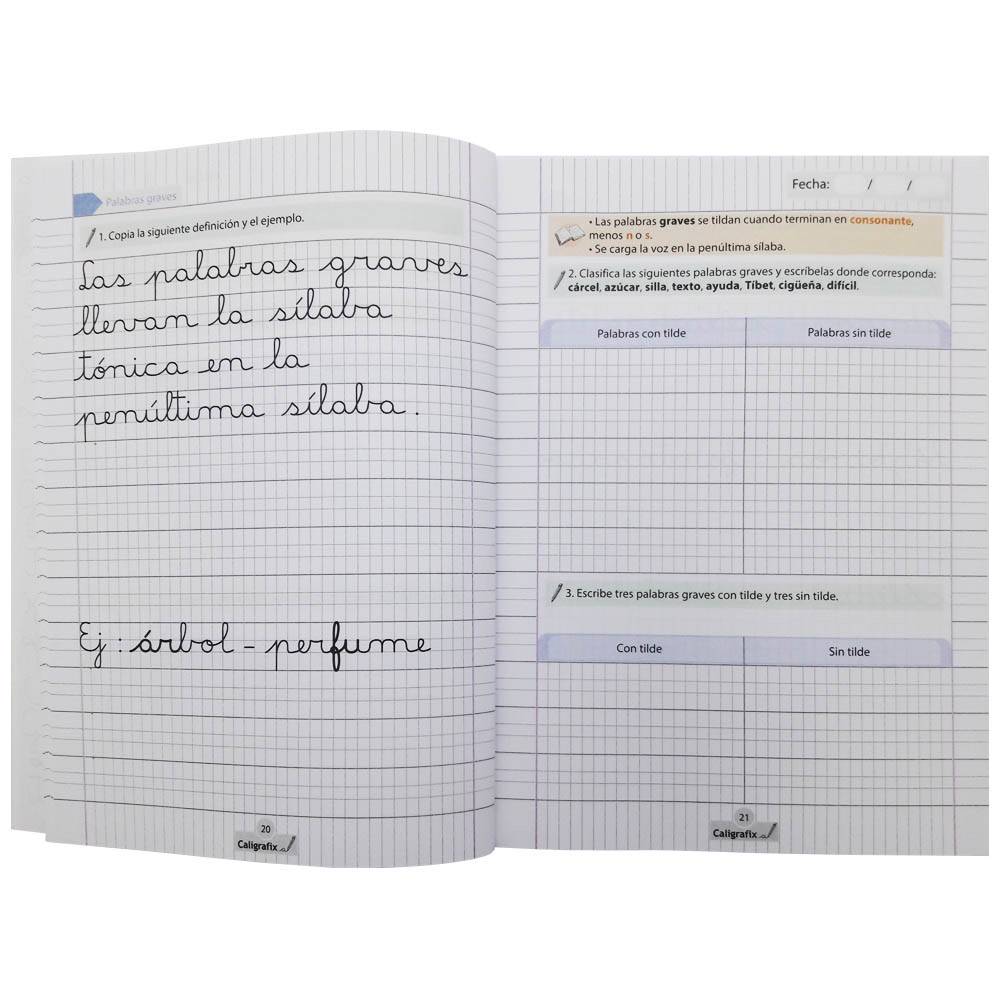 Palabras graves
1. Copia la siguiente definición y el ejemplo.
Las palabras graves
llevan la sílaba
tónica en la
penúltima sílaba.
Ej: árbol - perfume
20
Caligrafix
Fecha: / /
• Las palabras graves se tildan cuando terminan en consonante,
menos n o s.
• Se carga la voz en la penúltima sílaba.
2. Clasifica las siguientes palabras graves y escríbelas donde corresponda:
cárcel, azúcar, silla, texto, ayuda, Tíbet, cigüeña, difícil.
Palabras con tilde Palabras sin tilde
3. Escribe tres palabras graves con tilde y tres sin tilde.
Con tilde Sin tilde
21
Caligrafix